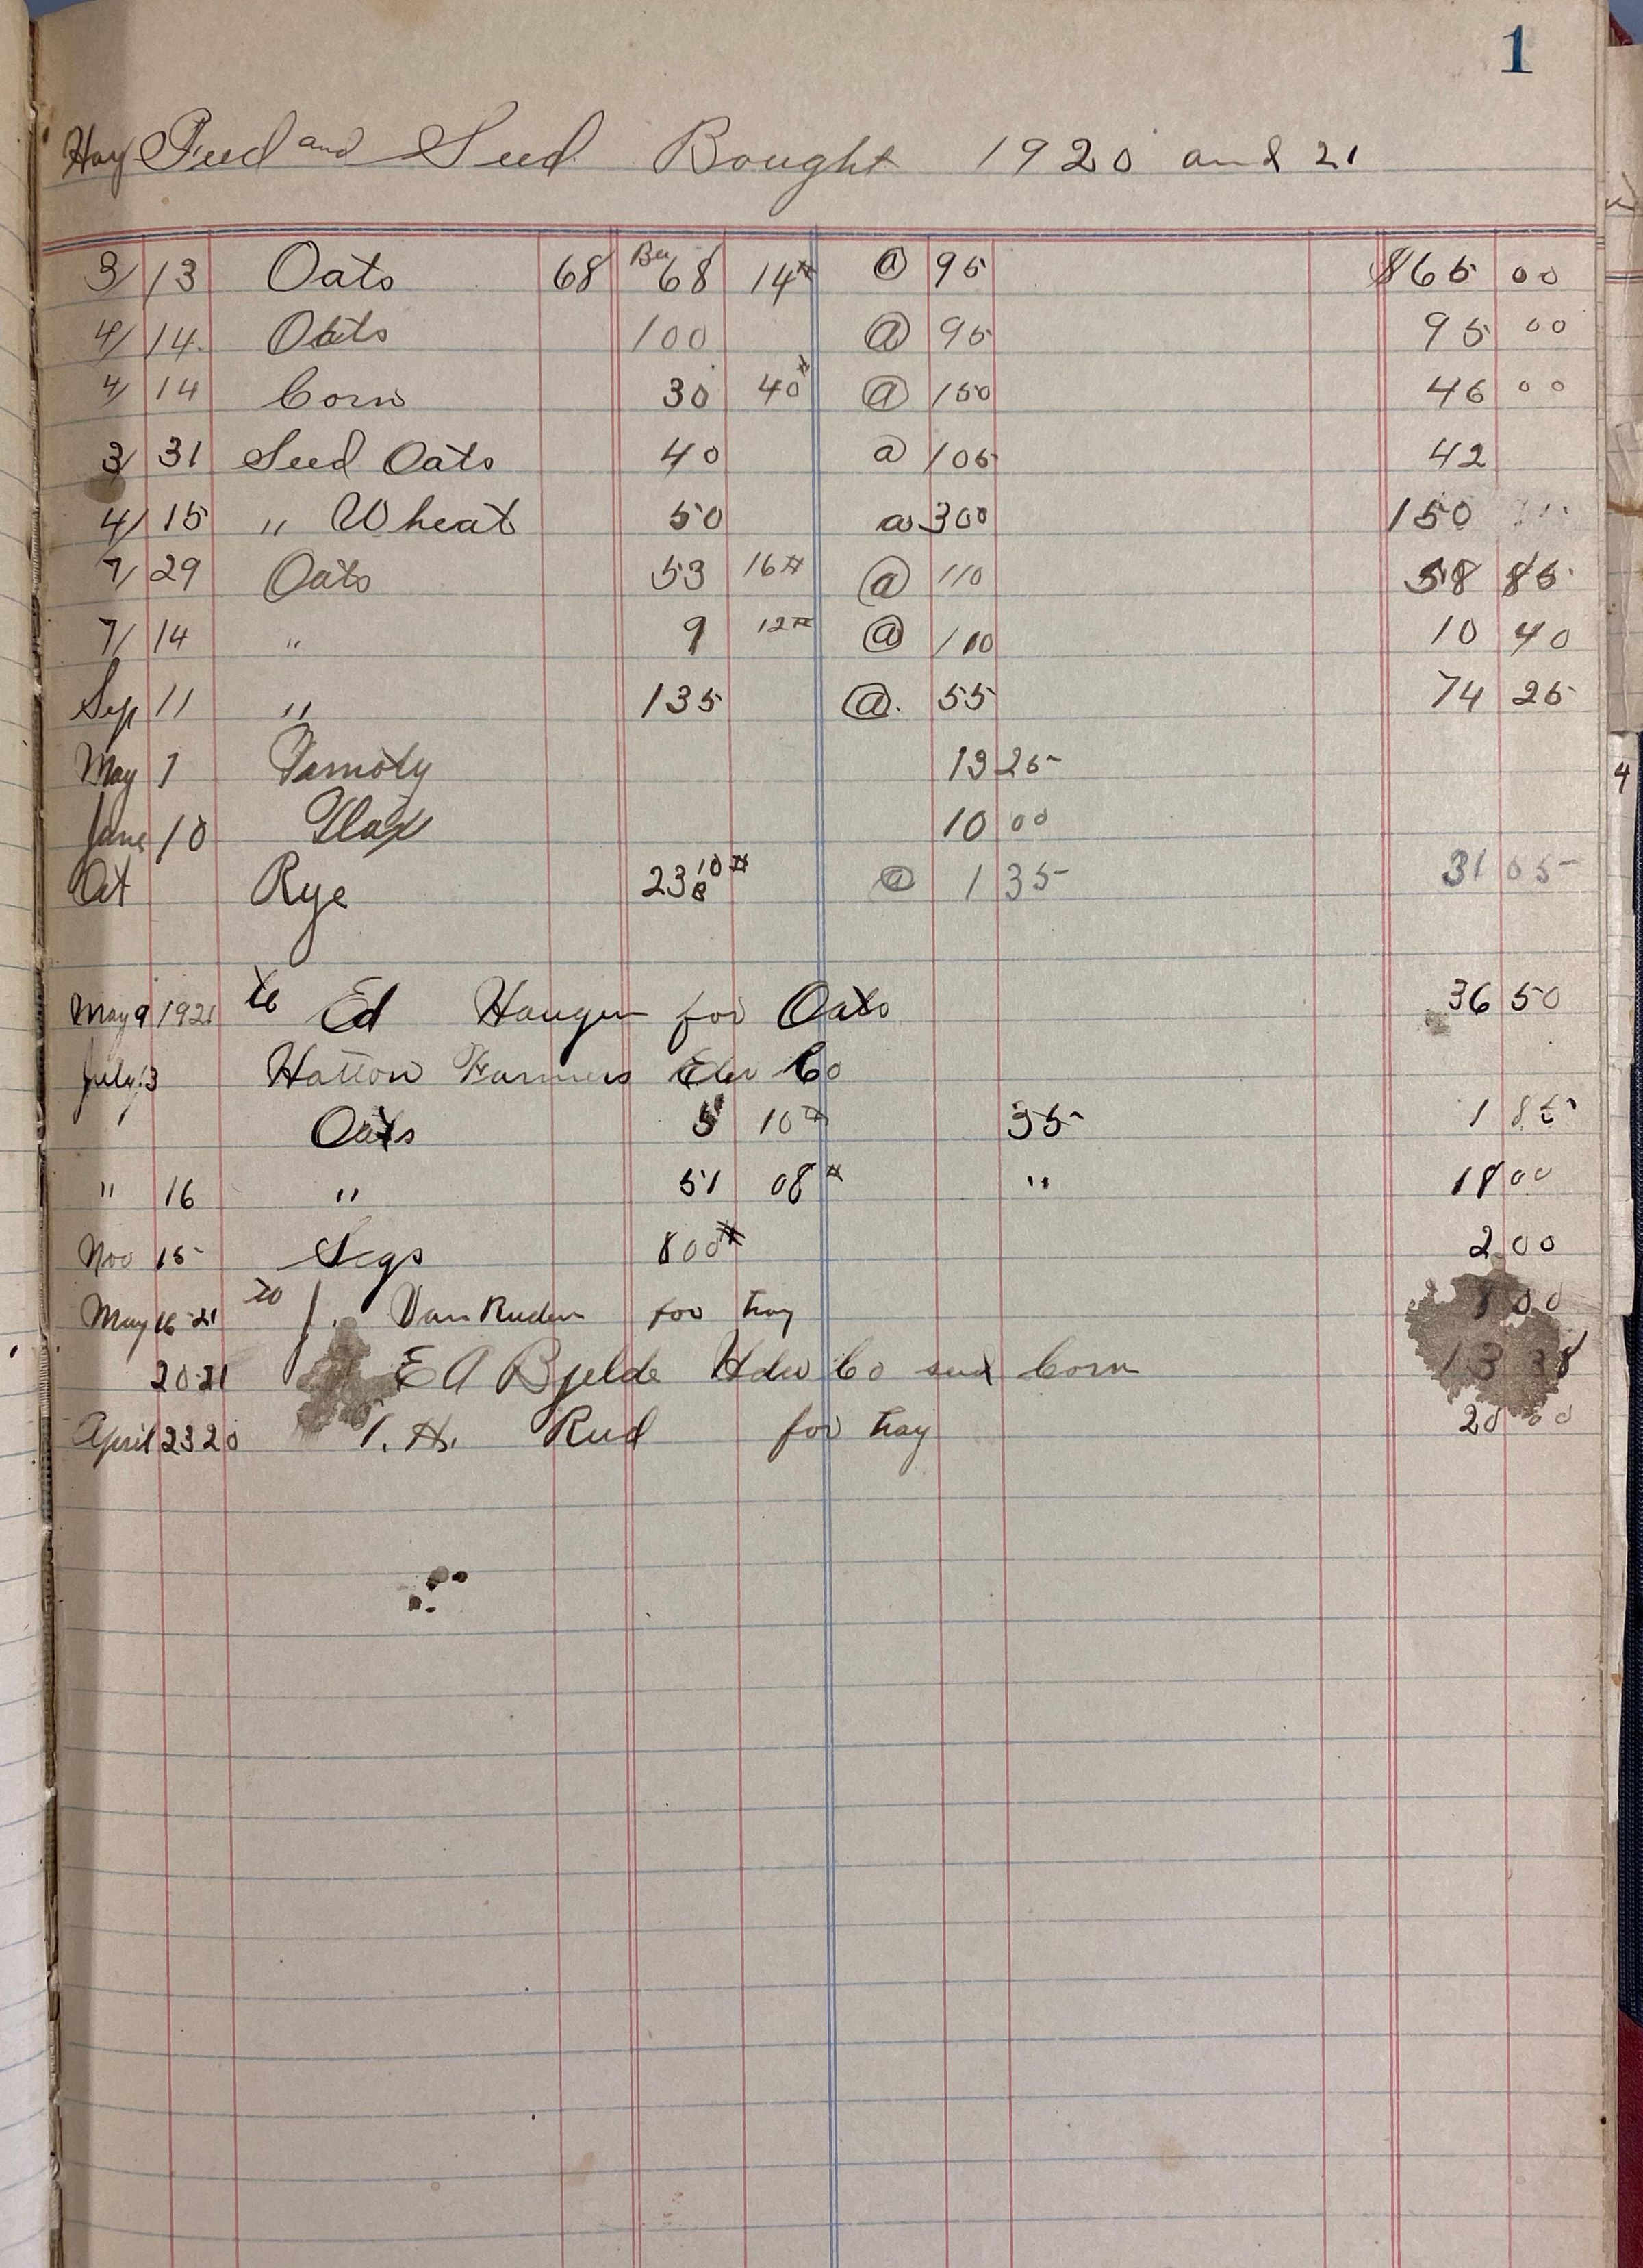 1
Hay Feed and Seed Bought 1920 and 21
3/ 13 Oats 68 Bu 68 14# @ 95 $65 00
4/ 14 Oats 100 @ 95 95 00
4/ 14 Corn 30 40# @ 150 46 00
3/ 31 Seed Oats 40 a 105 42
4/ 15 " Wheat 50 a 300 150
7/ 29 Oats 53 16# @ 110 58 85
7/ 14 " 9 12# @ 110 10 40
Sep 11 " 135 @ 55 74 25
May 1 Timoty 13 25
June 10 Flax 10 00
Oct Rye 23 10# @ 1 35 31 05
May 9 1921 to Ed Haugen for Oats 36 50
July 13 Hatton Farmers Elev Co
Oats 5 10# 35 1 85
" 16 " 51 08# " 18 00
Nov 15 Segs 800# 2 00
May 16 21 to J. Van Ruden for hay 8 00
20 21 E A Bjelde Hdw Co seed Corn 13 38
April 23 20 T. H. Rud for hay 20 00
4